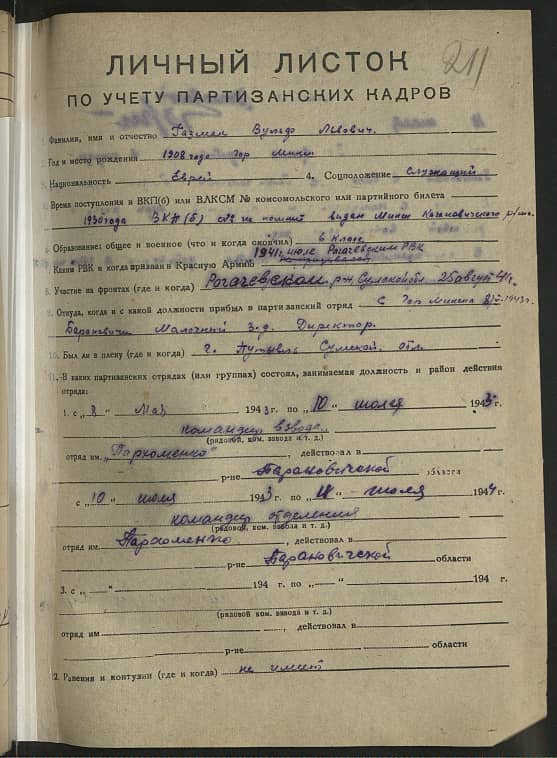 211
ЛИЧНЫЙ ЛИСТОК
ПО УЧЕТУ ПАРТИЗАНСКИХ КАДРОВ
Фамилия, имя и отчество Вульф
Год и место рождения 1908 года гор Минск
Национальность Еврей 4. Соцположение Служащий
Время поступления в ВКП(б) или ВЛКСМ № комсомольского или партийного билета
1930 года ВКП(б) № не помнит выдан Минск Кагановичского
Образование: общее и военное (что и когда окончил) 6 класс
Каким РВК и когда призван в Красную Армию 1941 июле Рогачевским РВК
8. Участие на фронтах (где и когда) Рогачевском 25 август 41 г.
9. Откуда, когда и с какой должности прибыл в партизанский отряд с гор 1943 г.
Барановичи Молочный з-д. Директор.
10. Был ли в плену (где и когда) г. Путивль Сумской обл.
11. В каких партизанских отрядах (или группах) состоял, занимаемая должность и район действия
отряда:
1. с „8" Май 1943 г. по „10" июля 1943 г.
командир взвода
(рядовой, ком. взвода и т. д.)
отряд им. „Пархоменко", действовал в
р-не Барановичской области
с „10" июля 1943 г. по „ " июля 1944 г.
командир отделения
(рядовой, ком. взвода и т. д.)
отряд им. Пархоменко, действовал в
р-не Барановичской области
3. с „—" 194 г. по „—" 194 г.
(рядовой, ком. взвода и т. д.)
отряд им , действовал в
р-не области
12. Ранения и контузии (где и когда) не имеет